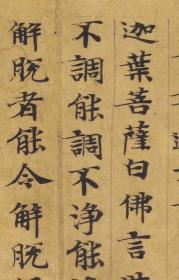 迦葉菩薩白佛言
不調能調不浄能
解脫者能令解脫